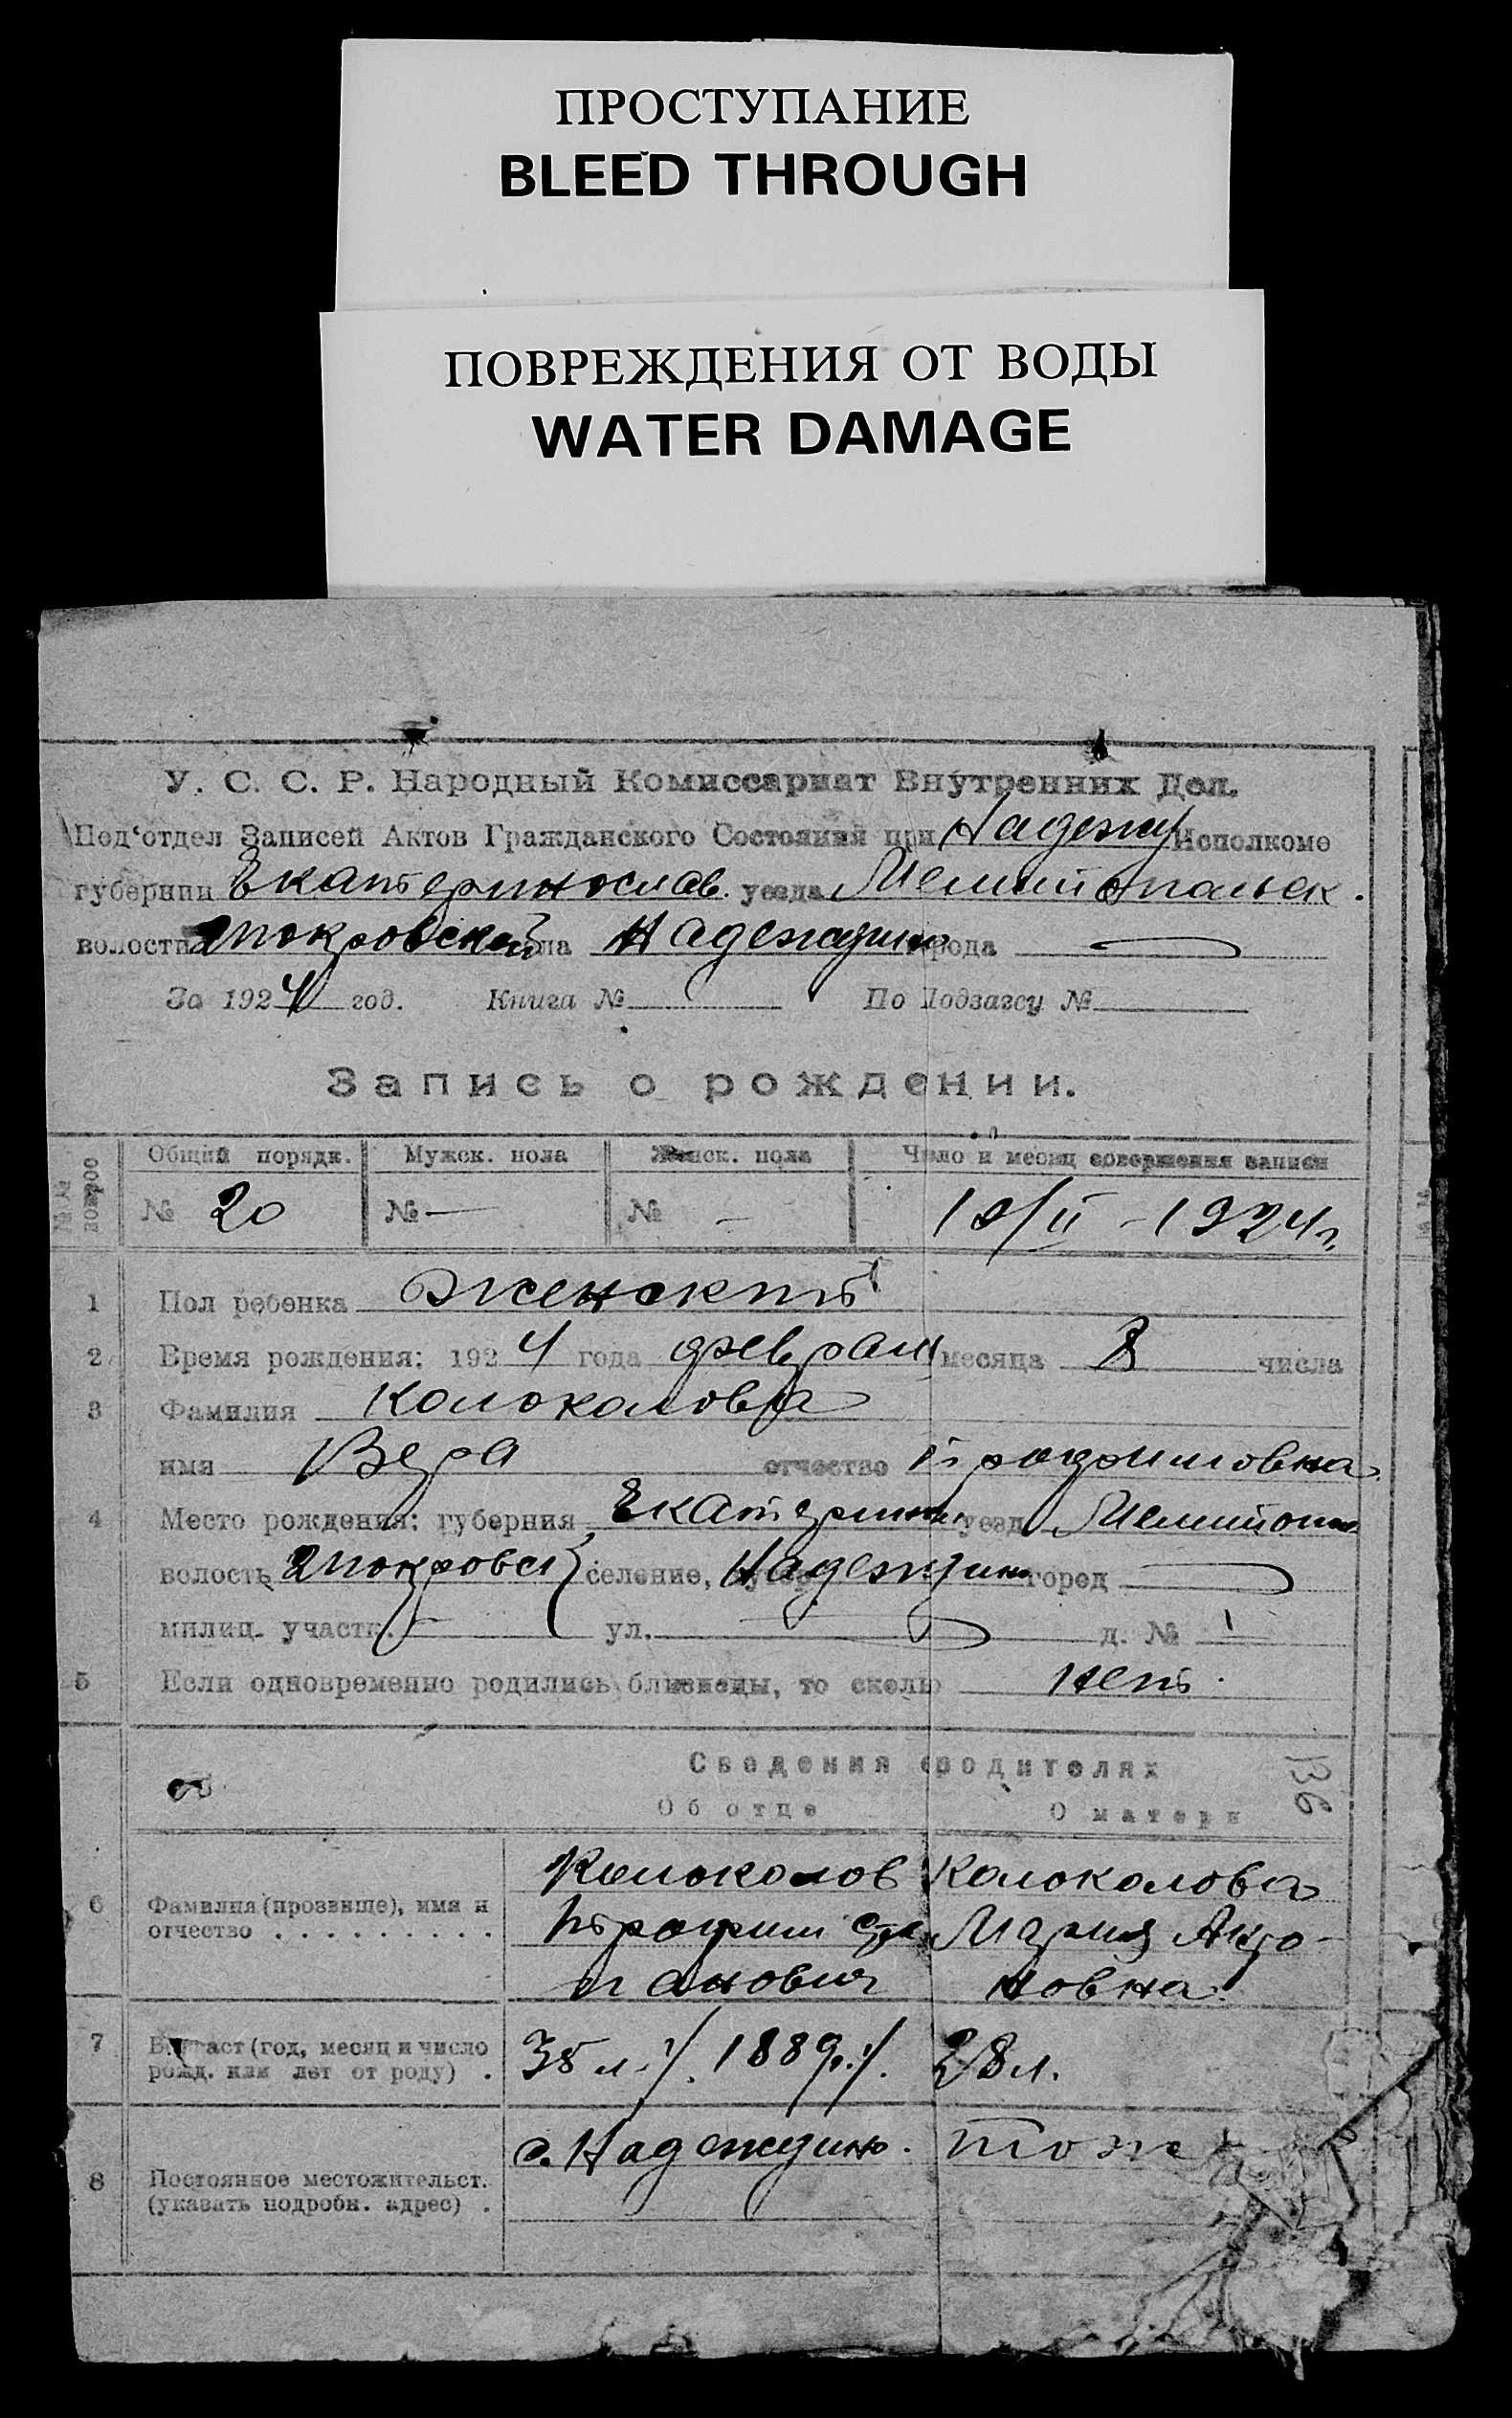 ПРОСТУПАНИЕ
BLEED THROUGH
ПОВРЕЖДЕНИЯ ОТ ВОДЫ
WATER DAMAGE
У. С. С. Р. Народный Комиссариат Внутренних Дел.
Под'отдел Записей Актов Гражданского Состояний при Надежд Исполкоме
губернии Екатеринослав. уезда Мелитопольск.
волости Покровской села Надеждино города —
За 1924 год. Книга № По Подзагсу №
Запись о рождении.
Общий порядк. Мужск. пола Женск. пола Число и месяц совершения записи
№ 20 № — № — 10/II - 1924 г.
1 Пол ребенка женскить
2 Время рождения: 1924 года февраля месяца 8 числа
3 Фамилия Колоколова
имя Вера отчество Трофимовна
4 Место рождения: губерния Екатерин уезд Мелитопол
волость Покровск селение, Надеждино город —
милиц. участк. — ул. — д. №
5 Если одновременно родились близнецы, то сколь неть.
Сведения о родителях
136
Об отце О матери
6 Фамилия (прозвище), имя и отчество . . . . . . . . .
Колоколов Колоколова
Трофим Сте Мария Андро-
панович новна
7 Возраст (год, месяц и число рожд. или лет от роду) .
35 л. /. 1889 г. /. 28 л.
8 Постоянное местожительст. (указать подробн. адрес) .
с. Надеждино. тоже